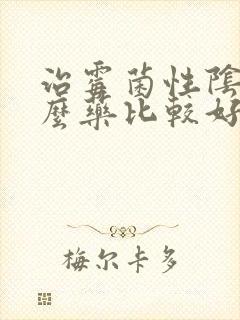 治霉菌性陰
麼藥比較好
梅尔卡多